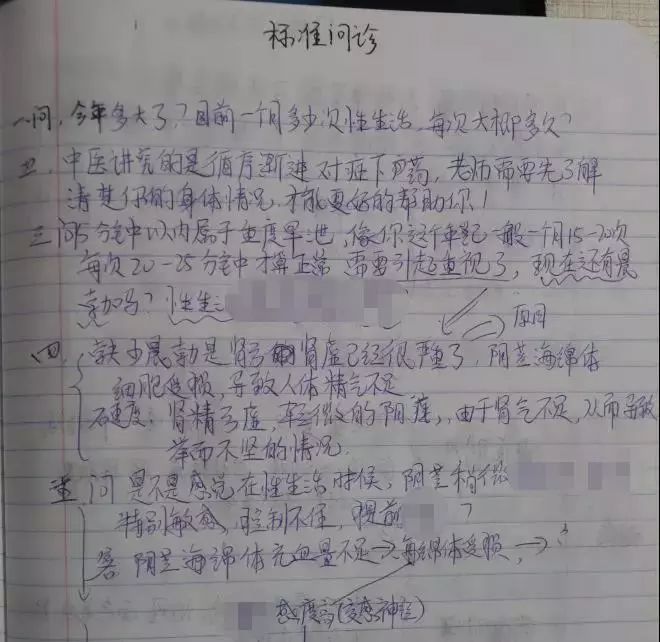 标准问诊
一问，今年多大了？目前一个月多少次性生活，每次大概多久？
二，中医讲究的是循序渐进 对症下药，老师需要先了解
清楚你的身体情况，才能更好的帮助你！
三问5分钟以内属于重度早泄，像你这个年纪一般一个月15-20次
每次20-25分钟才算正常 需要引起重视了，现在还有晨
勃加吗？性生
原因
四、缺少晨勃是肾亏 肾虚已经很严重了，阴茎海绵体
细胞受损，导致人体精气不足
硬度：肾精亏虚，轻微的阳痿，由于肾气不足，从而导致
举而不坚的情况.
问 是不是感觉在性生活时候，阴茎稍微
特别敏感，控制不住，提前 ？
答 阴茎海绵体充血量不足→海绵体受损，→
感度高(交感神经)